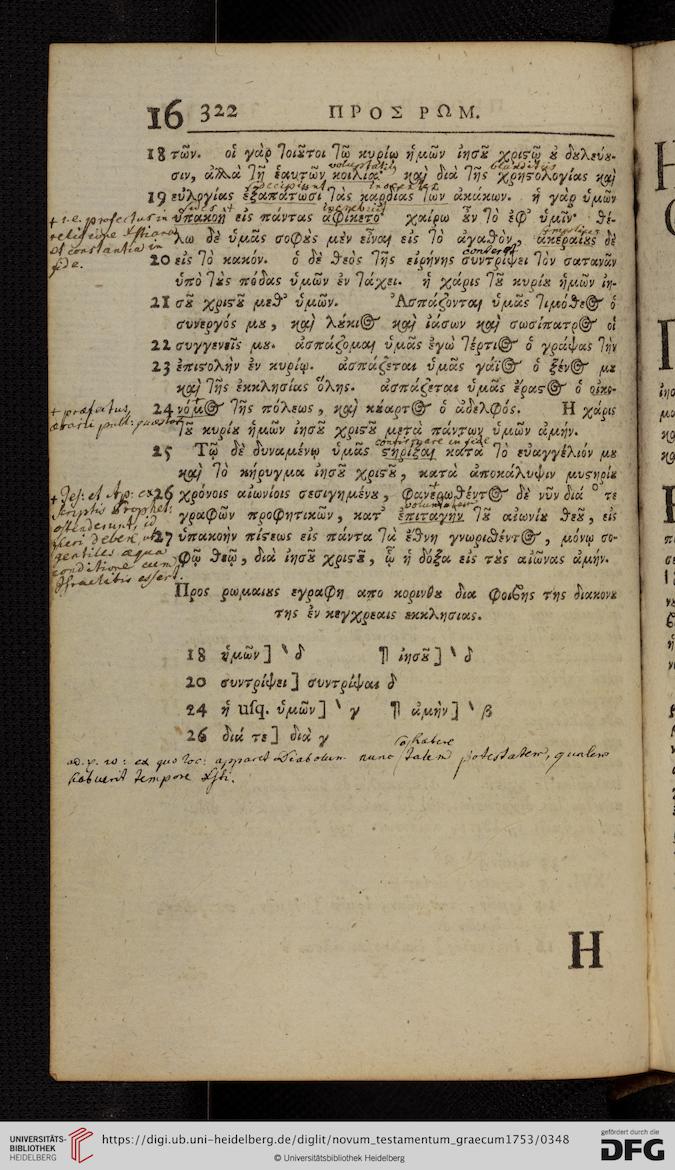 16 322 ΠΡΟΣ ΡΩΜ.
18 τῶν. οἱ γὰρ τοιοῦτοι τῷ κυρίῳ ἡμῶν ἰησοῦ χριστῷ οὐ δουλεύου-
σιν, ἀλλὰ τῇ ἑαυτῶν κοιλίᾳ· καὶ διὰ τῆς χρηστολογίας καὶ
19 εὐλογίας ἐξαπατῶσι τὰς καρδίας τῶν ἀκάκων. ἡ γὰρ ὑμῶν
ὑπακοὴ εἰς πάντας ἀφίκετο· χαίρω οὖν τὸ ἐφ' ὑμῖν· θέ-
λω δὲ ὑμᾶς σοφοὺς μὲν εἶναι εἰς τὸ ἀγαθὸν, ἀκεραίους δὲ
20 εἰς τὸ κακόν. ὁ δὲ θεὸς τῆς εἰρήνης συντρίψει τὸν σατανᾶν
ὑπὸ τοὺς πόδας ὑμῶν ἐν τάχει. ἡ χάρις τοῦ κυρίου ἡμῶν ἰη-
21 σοῦ χριστοῦ μεθ' ὑμῶν. Ἀσπάζονται ὑμᾶς τιμόθεος ὁ
συνεργός μου, καὶ λούκιος καὶ ἰάσων καὶ σωσίπατρος οἱ
22 συγγενεῖς μου. ἀσπάζομαι ὑμᾶς ἐγὼ τέρτιος ὁ γράψας τὴν
23 ἐπιστολὴν ἐν κυρίῳ. ἀσπάζεται ὑμᾶς γάϊος ὁ ξένος μου
καὶ τῆς ἐκκλησίας ὅλης. ἀσπάζεται ὑμᾶς ἔραστος ὁ οἰκο-
24 νόμος τῆς πόλεως, καὶ κούαρτος ὁ ἀδελφός. Η χάρις
τοῦ κυρίου ἡμῶν ἰησοῦ χριστοῦ μετὰ πάντων ὑμῶν ἀμήν.
25 Τῷ δὲ δυναμένῳ ὑμᾶς στηρίξαι κατὰ τὸ εὐαγγέλιόν μου
καὶ τὸ κήρυγμα ἰησοῦ χριστοῦ, κατὰ ἀποκάλυψιν μυστηρίου
26 χρόνοις αἰωνίοις σεσιγημένου, φανερωθέντος δὲ νῦν διά τε
γραφῶν προφητικῶν, κατ' ἐπιταγὴν τοῦ αἰωνίου θεοῦ, εἰς
27 ὑπακοὴν πίστεως εἰς πάντα τὰ ἔθνη γνωρισθέντος, μόνῳ σο-
φῷ θεῷ, διὰ ἰησοῦ χριστοῦ, ᾧ ἡ δόξα εἰς τοὺς αἰῶνας ἀμήν.
Προς ρωμαιους εγραφη απο κορινθου δια φοιβης της διακονου
της ἐν κεγχρεαις εκκλησιας.
18 ἡμῶν] ‵ δ ¶ ἰησοῦ] ‵ δ
20 συντρίψει] συντρίψαι δ
24 ἡ usq. ὑμῶν] ‵ γ ¶ ἀμὴν] ‵ β
26 διά τε] διὰ γ
ad. v. 20: ex quo loc: apparet Diabolum nunc talem potestatem, qualem
habuerit tempore Xsti.
Η
voluptatis
blanditiis
decipiunt
+ i.e. profectus in
religione Xstiana
et constantia in
fide.
+ præfectus
ærarii publ:
confirmare in fide
UNIVERSITÄTS-
BIBLIOTHEK
HEIDELBERG
https://digi.ub.uni-heidelberg.de/diglit/novum_testamentum_graecum1753/0348
© Universitätsbibliothek Heidelberg
gefördert durch die
DFG